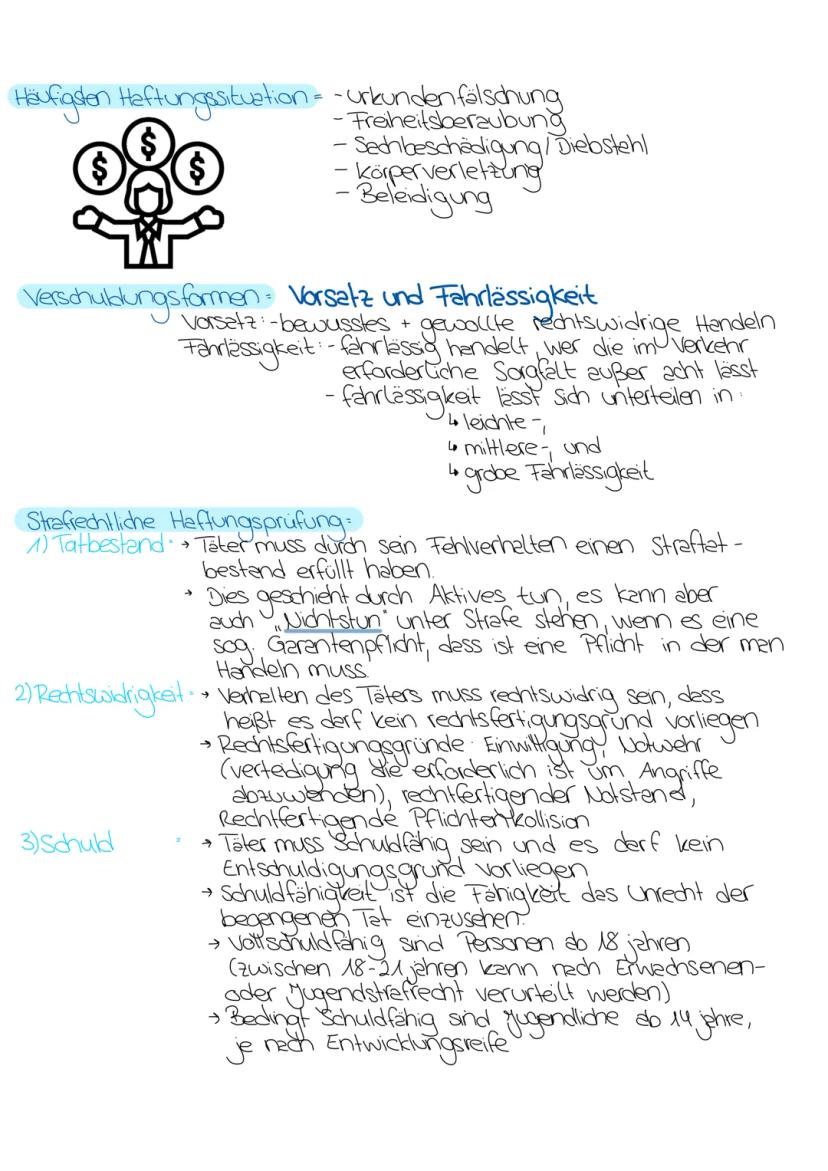 Häufigsten Haftungssituation = - Urkundenfälschung
- Freiheitsberaubung
- Sachbeschädigung / Diebstahl
- Körperverletzung
- Beleidigung
$ $ $
Verschuldungsformen = Vorsatz und Fahrlässigkeit
Vorsatz: - bewusstes + gewollte rechtswidrige Handeln
Fahrlässigkeit: - fahrlässig handelt, wer die im Verkehr
erforderliche Sorgfalt außer acht lässt
- fahrlässigkeit lässt sich unterteilen in:
↳ leichte -,
↳ mittlere -, und
↳ grobe Fahrlässigkeit
Strafrechtliche Haftungsprüfung =
1) Tatbestand = → Täter muss durch sein Fehlverhalten einen Straftat -
bestand erfüllt haben.
→ Dies geschieht durch Aktives tun, es kann aber
auch „Nichtstun" unter Strafe stehen, wenn es eine
sog. Garantenpflicht, dass ist eine Pflicht in der man
Handeln muss.
2) Rechtswidrigkeit = → Verhalten des Täters muss rechtswidrig sein, dass
heißt es darf kein rechtsfertigungsgrund vorliegen
→ Rechtsfertigungsgründe: Einwilligung, Notwehr
(verteidigung die erforderlich ist um Angriffe
abzuwenden), rechtfertigender Notstand,
Rechtfertigende Pflichtenkollision
3) Schuld = → Täter muss Schuldfähig sein und es darf kein
Entschuldigungsgrund vorliegen
→ Schuldfähigkeit ist die Fähigkeit das Unrecht der
begangenen Tat einzusehen.
→ Vollschuldfähig sind Personen ab 18 jahren
(zwischen 18-21 jahren kann nach Erwachsenen-
oder Jugendstrafrecht verurteilt werden)
→ Bedingt Schuldfähig sind Jugendliche ab 14 jahre,
je nach Entwicklungsreife